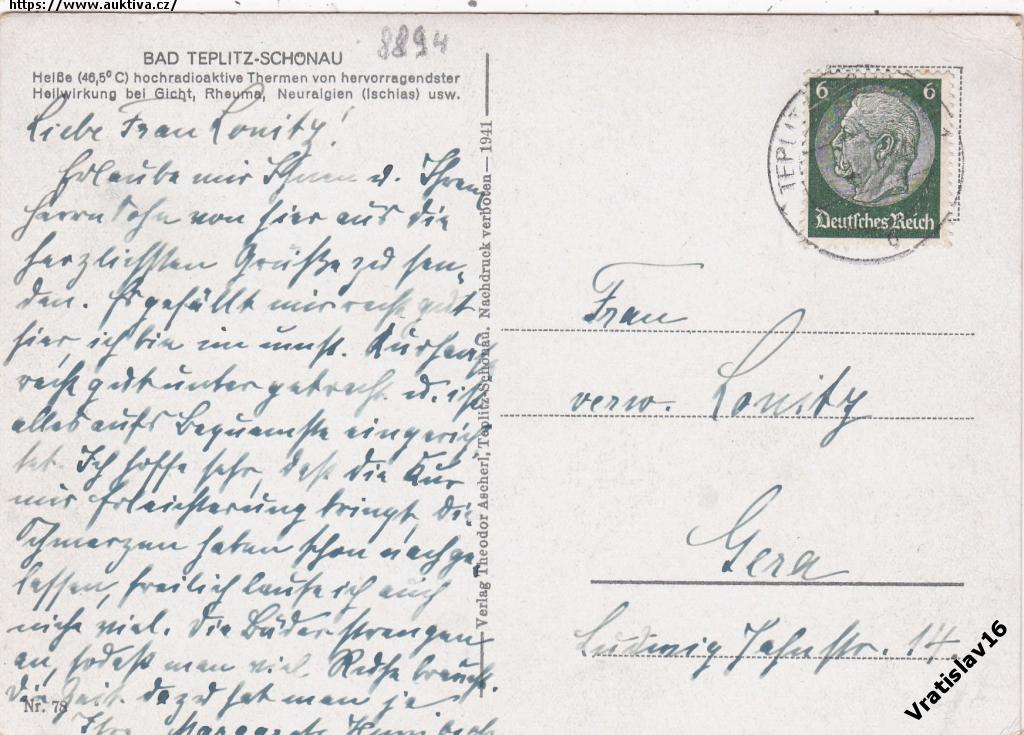 https://www.auktiva.cz/
8894
BAD TEPLITZ-SCHÖNAU
Heiße (46,5° C) hochradioaktive Thermen von hervorragendster
Heilwirkung bei Gicht, Rheuma, Neuralgien (Ischias) usw.
Liebe Frau Lonitz!
Erlaube mir Ihnen u. Ihrem
Herrn Sohn von hier aus die
herzlichsten Grüße zu sen-
den. Es gefällt mir recht gut
hier, ich bin im
recht gut untergebracht u. ist
alles aufs Bequemste eingerich-
tet. Ich hoffe sehr, daß die Kur
mir Erleichterung bringt, die
Schmerzen haben schon nachge-
lassen, freilich laufe ich auch
nicht viel. Die Bäder strengen
an, sodaß man viel Ruhe braucht.
Die Zeit dazu hat man ja
Ihre
Nr. 78
Verlag Theodor Ascherl, Teplitz-Schönau. Nachdruck verboten — 1941
6 6
Deutsches Reich
TEPLITZ
Frau
verw. Lonitz
Gera
Ludwig Jahnstr. 14.
Vratislav16